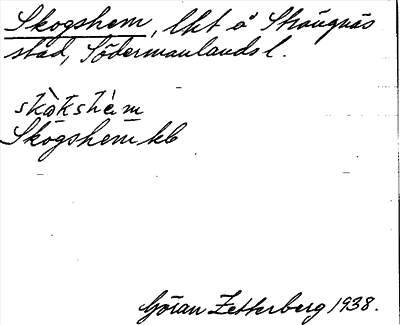 Skogshem, lht å Strängnäs
stad, Södermanlands l.
skò̤kshèm
Skogshem kb
Göran Zetterberg 1938.